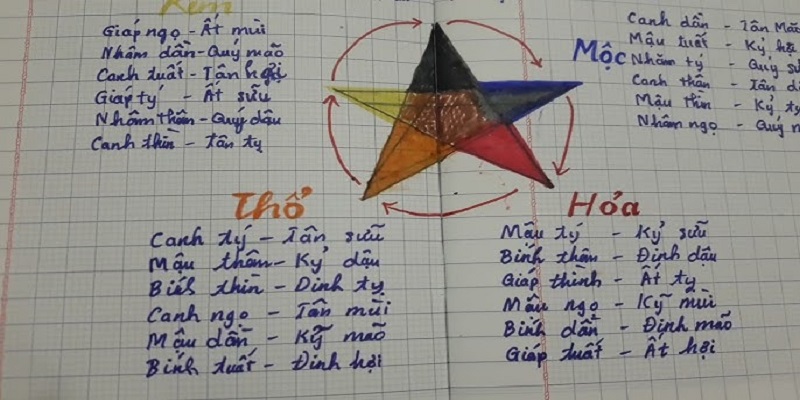 Kem
Giáp ngọ - Ất mùi
Nhâm dần - Quý mão
Canh tuất - Tân hợi
Giáp tý - Ất sửu
Nhâm thân - Quý dậu
Canh thìn - Tân tỵ
Mộc
Canh dần - Tân Mã
Mậu tuất - Kỷ hợ
Nhâm tý - Quý sử
Canh thân - Tân d
Mậu thìn - Kỷ tỵ
Nhâm ngọ - Quý m
Thổ
Canh tý - Tân sửu
Mậu thân - Kỷ dậu
Bính thìn - Đinh tỵ
Canh ngọ - Tân mùi
Mậu dần - Kỹ mão
Bính tuất - Đinh hợi
Hỏa
Mậu tý - Kỷ sửu
Bính thân - Đinh dậu
Giáp thình - Ất tỵ
Mậu ngọ - Kỹ mùi
Bính dần - Đinh mão
Giáp tuất - Ất hợi